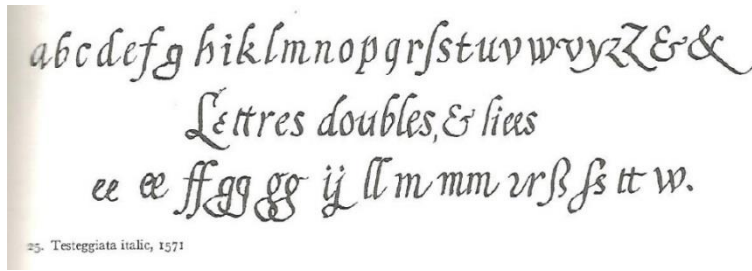 abcdefghiklmnopqrſstuvwvyzZ&&
Lettres doubles, & liees
ee ee ff gg gg ij ll m mm vr ß ſs tt w.
25. Testeggiata italic, 1571